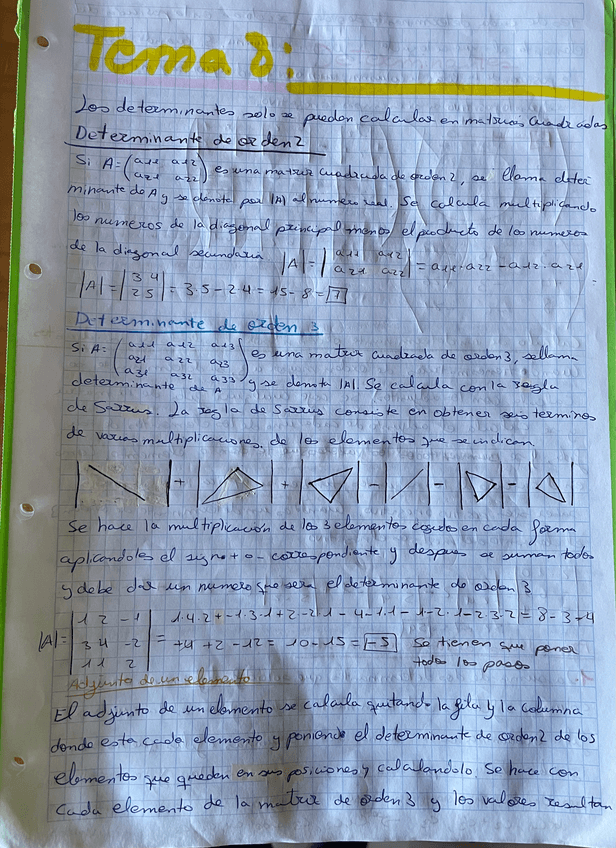 Tema 8:
Los determinantes solo se pueden calcular en matrices cuadradas
Determinante de orden 2
Si A = (a11 a12
a21 a22) es una matriz cuadrada de orden 2, se llama deter
minante de A y se denota por |A| al numero real. Se calcula multiplicando
los numeros de la diagonal principal menos el producto de los numeros
de la diagonal secundaria |A| = |a11 a12
a21 a22| = a11·a22 - a12·a21
|A| = |3 4
2 5| = 3·5 - 2·4 = 15 - 8 = 7
Determinante de orden 3
Si A = (a11 a12 a13
a21 a22 a23
a31 a32 a33) es una matriz cuadrada de orden 3, se llama
determinante de A y se denota |A|. Se calcula con la regla
de Sarrus. La regla de Sarrus consiste en obtener seis terminos
de varias multiplicaciones de los elementos que se indican
| | + | | + | | - | | - | | - | |
Se hace la multiplicación de los 3 elementos cogidos en cada forma
aplicandoles el signo + o - correspondiente y despues se suman todos
y debe dar un numero que sera el determinante de orden 3
|A| = |1 2 -1
3 4 -2
1 1 2| = 1·4·2 + -1·3·1 + 2·-2·1 - 4·-1·1 - 1·-2·1 - 2·3·2 = 8 - 3 - 4
+4 +2 -12 = 10 - 15 = -5 Se tienen que poner
todos los pasos
Adjunto de un elemento
El adjunto de un elemento se calcula quitando la fila y la columna
donde esta cada elemento y poniendo el determinante de orden 2 de los
elementos que queden en sus posiciones y calculandolo. Se hace con
cada elemento de la matriz de orden 3 y los valores resultan